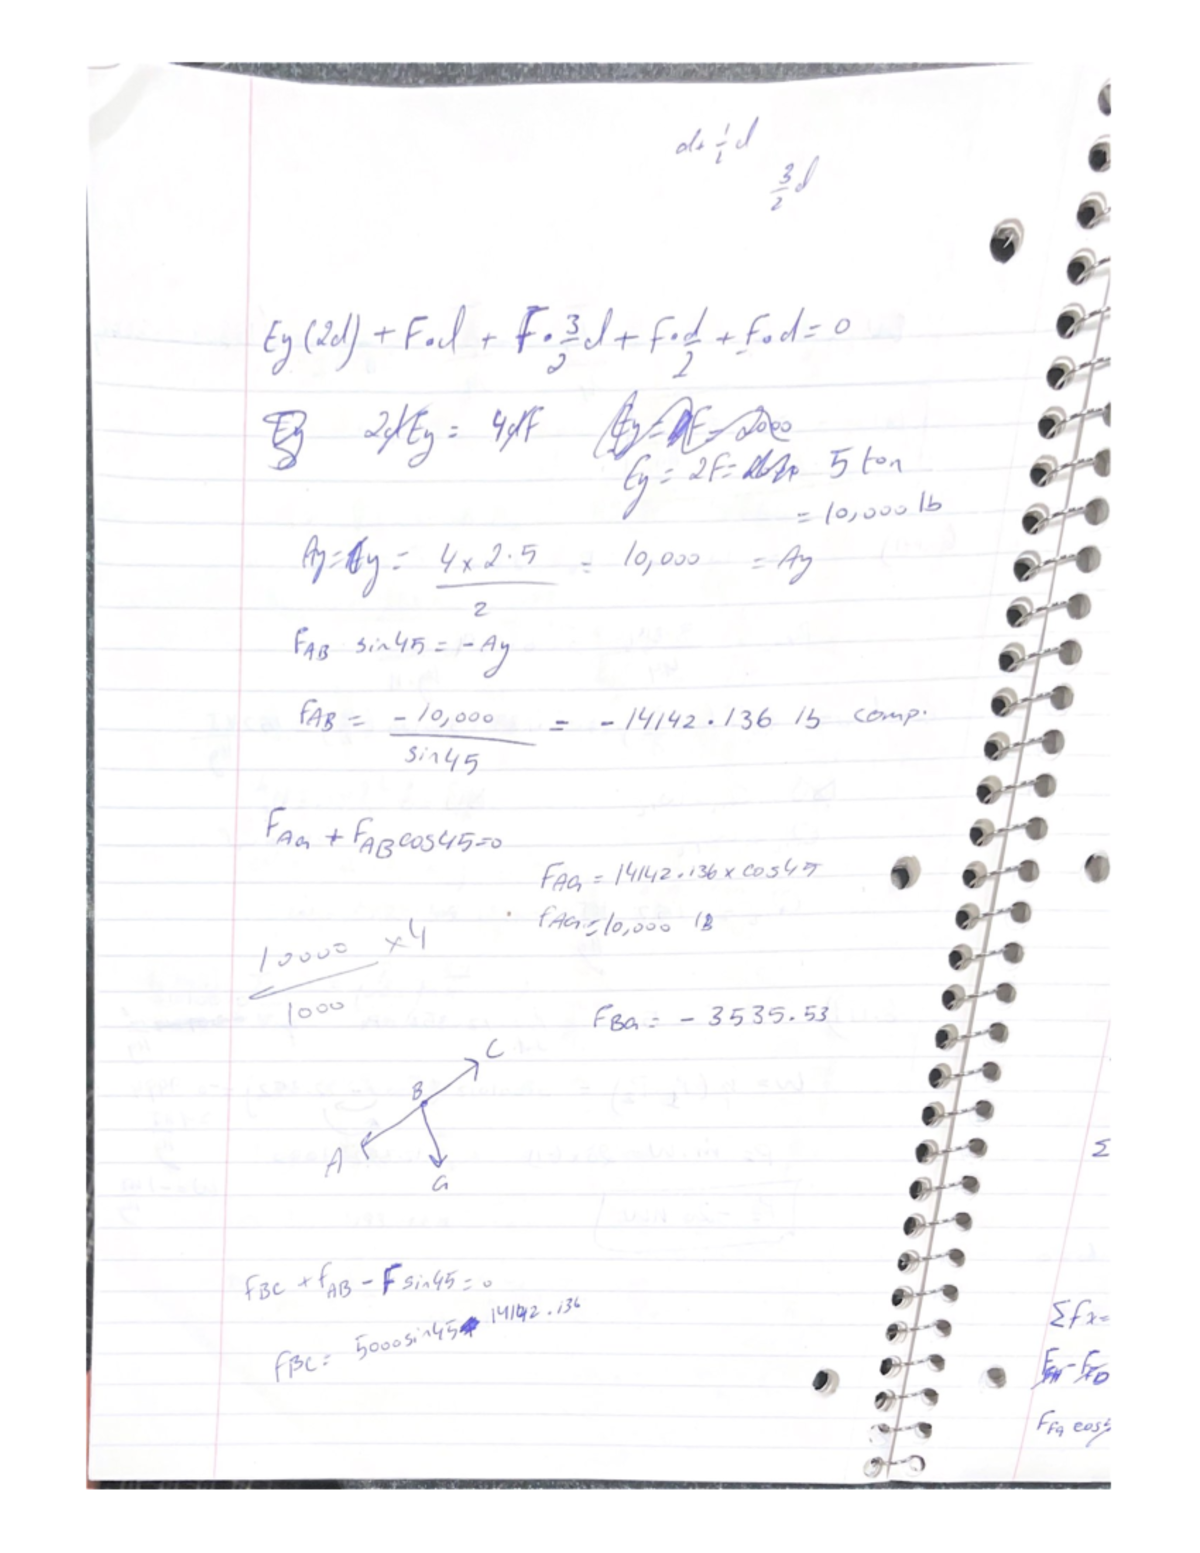 d+ ½ d
3/2 d
Ey (2d) + F•d + F•3/2 d + F•d/2 + F•d = 0
Ey 2dEy = 4dF
Ey = 2F = 5 ton
= 10,000 lb
Ay = Ey = 4 x 2.5 / 2 = 10,000 = Ay
FAB sin45 = -Ay
FAB = -10,000 / sin45 = -14142.136 lb comp.
FAG + FAB cos45=0
FAG = 14142.136 x cos45
FAG = 10,000 lB
10000 / 1000 x4
FBG = - 3535.53
C
B
A
G
FBC + FAB - F sin45 = 0
FBC = 5000sin45 14142.136
Σ
Σfx=
FFG cos